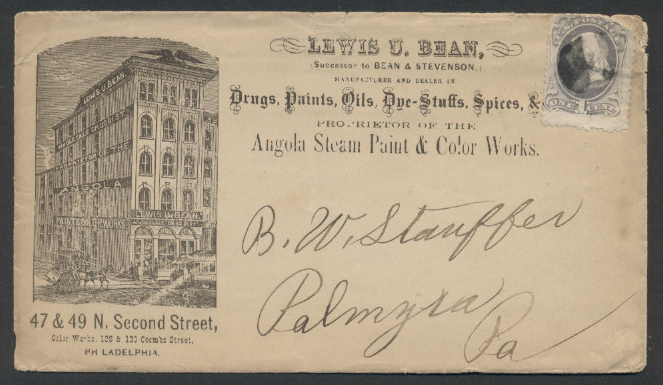 LEWIS U. BEAN,
(Successor to BEAN & STEVENSON,)
MANUFACTURER AND DEALER IN
Drugs, Paints, Oils, Dye-Stuffs, Spices, &
PROPRIETOR OF THE
Angola Steam Paint & Color Works.
LEWIS U. BEAN
WHOLESALE DRUGGIST
ANGOLA
PAINT & COLOR WORKS
LEWIS U. BEAN
B. W. Stauffer
Palmyra
Pa
47 & 49 N. Second Street,
Color Works. 128 & 130 Coombs Street,
PH LADELPHIA.